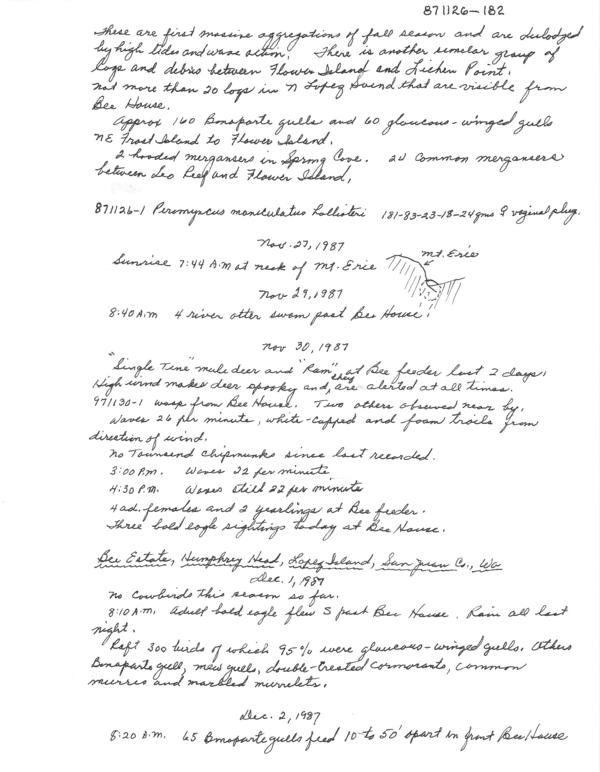 871126-182
These are first massive aggregations of fall season and are dislodged
by high tides and wave action. There is another similar group of
logs and debris between Flower Island and Lichen Point.
Not more than 20 logs in N Lopez Sound that are visible from
Bee House.
Approx 160 Bonaparte gulls and 60 glaucous-winged gulls
NE Frost Island to Flower Island.
2 hooded mergansers in Spring Cove. 20 Common mergansers
between Leo Reef and Flower Island.
871126-1 Peromyscus maniculatus hollisteri 181-83-23-18-24gms ♀ vaginal plug.
Nov. 27, 1987
Sunrise 7:44 A.M at neck of Mt. Erie
Mt. Erie
Nov 29, 1987
8:40 A.M 4 river otter swam past Bee House.
Nov 30, 1987
"Single Tine" mule deer and "Ram" at Bee feeder last 2 days.
High wind makes deer spooky and they are alerted at all times.
971130-1 wasp from Bee House. Two others observed near by.
Waves 26 per minute, white-capped and foam trails from
direction of wind.
No Townsend chipmunks since last recorded.
3:00 P.M. Waves 22 per minute
4:30 P.M. Waves still 22 per minute
4 ad. females and 2 yearlings at Bee feeder.
Three bald eagle sightings today at Bee House.
Bee Estate, Humphrey Head, Lopez Island, San Juan Co., Wa
Dec. 1, 1987
No Cowbirds this season so far.
8:10 A.M. Adult bald eagle flew S past Bee House. Rain all last
night.
Raft 300 birds of which 95% were glaucous-winged gulls. Others
Bonaparte gull, mew gulls, double-crested Cormorants, common
murres and marbled murrelets.
Dec. 2, 1987
8:20 A.M. 65 Bonaparte gulls feed 10 to 50' apart in front Bee House